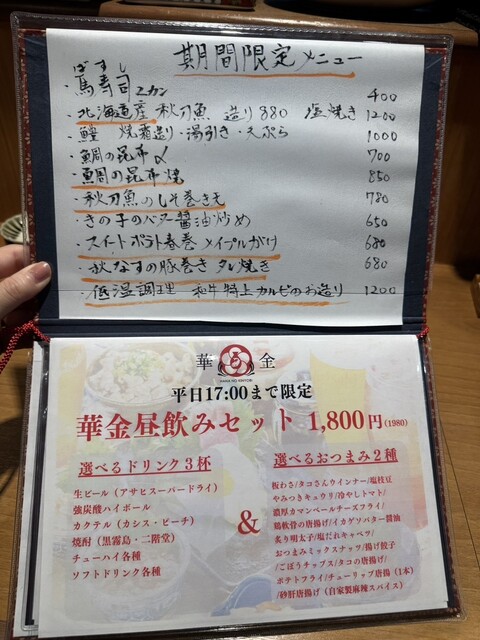 期間限定メニュー
ばすし
・馬寿司 2カン 400
・北海道産 秋刀魚 造り880 塩焼き 1200
・鱧 焼霜造り・湯引き・天ぷら 1000
・鯛の昆布〆 700
・鯛の昆布焼 850
・秋刀魚のしそ巻き天 780
・きの子のバター醤油炒め 650
・スイートポテト春巻 メイプルがけ 680
・秋なすの豚巻き タレ焼き 680
・低温調理 和牛特上カルビのお造り 1200
華 金
平日17:00まで限定
華金昼飲みセット 1,800円(1980)
選べるドリンク3杯
生ビール(アサヒスーパードライ)
強炭酸ハイボール
カクテル(カシス・ピーチ)
焼酎(黒霧島・二階堂)
チューハイ各種
ソフトドリンク各種
&
選べるおつまみ2種
板わさ/タコさんウインナー/塩枝豆
やみつきキュウリ/冷やしトマト/
濃厚カマンベールチーズフライ/
鶏軟骨の唐揚げ/イカゲソバター醤油
炙り明太子/塩だれキャベツ/
おつまみミックスナッツ/揚げ餃子
/ごぼうチップス/タコの唐揚げ/
ポテトフライ/チューリップ唐揚(1本)
/砂肝唐揚げ(自家製麻辣スパイス)